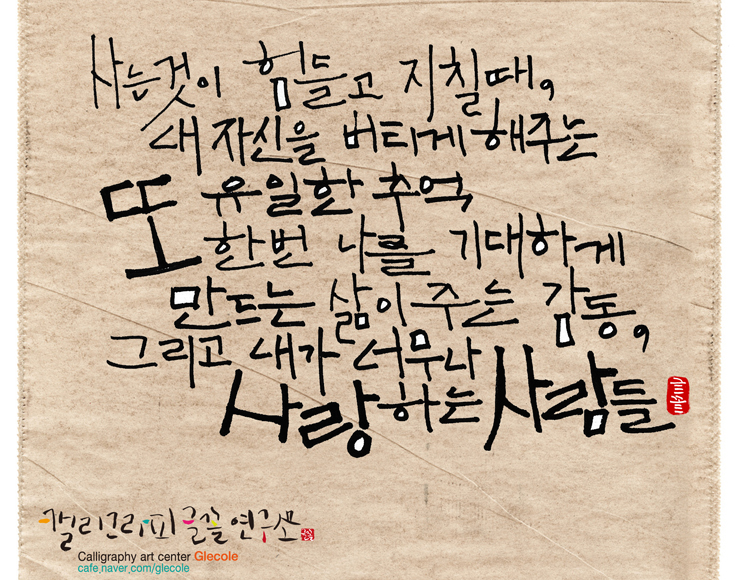 사는것이 힘들고 지칠때,
내 자신을 버티게 해주는
또 유일한 추억
한번 나를 기대하게
만드는 삶이 주는 감동,
그리고 내가 너무나
사랑하는 사람들
캘리그라피 글꼴 연구소
Calligraphy art center Glecole
cafe.naver.com/glecole